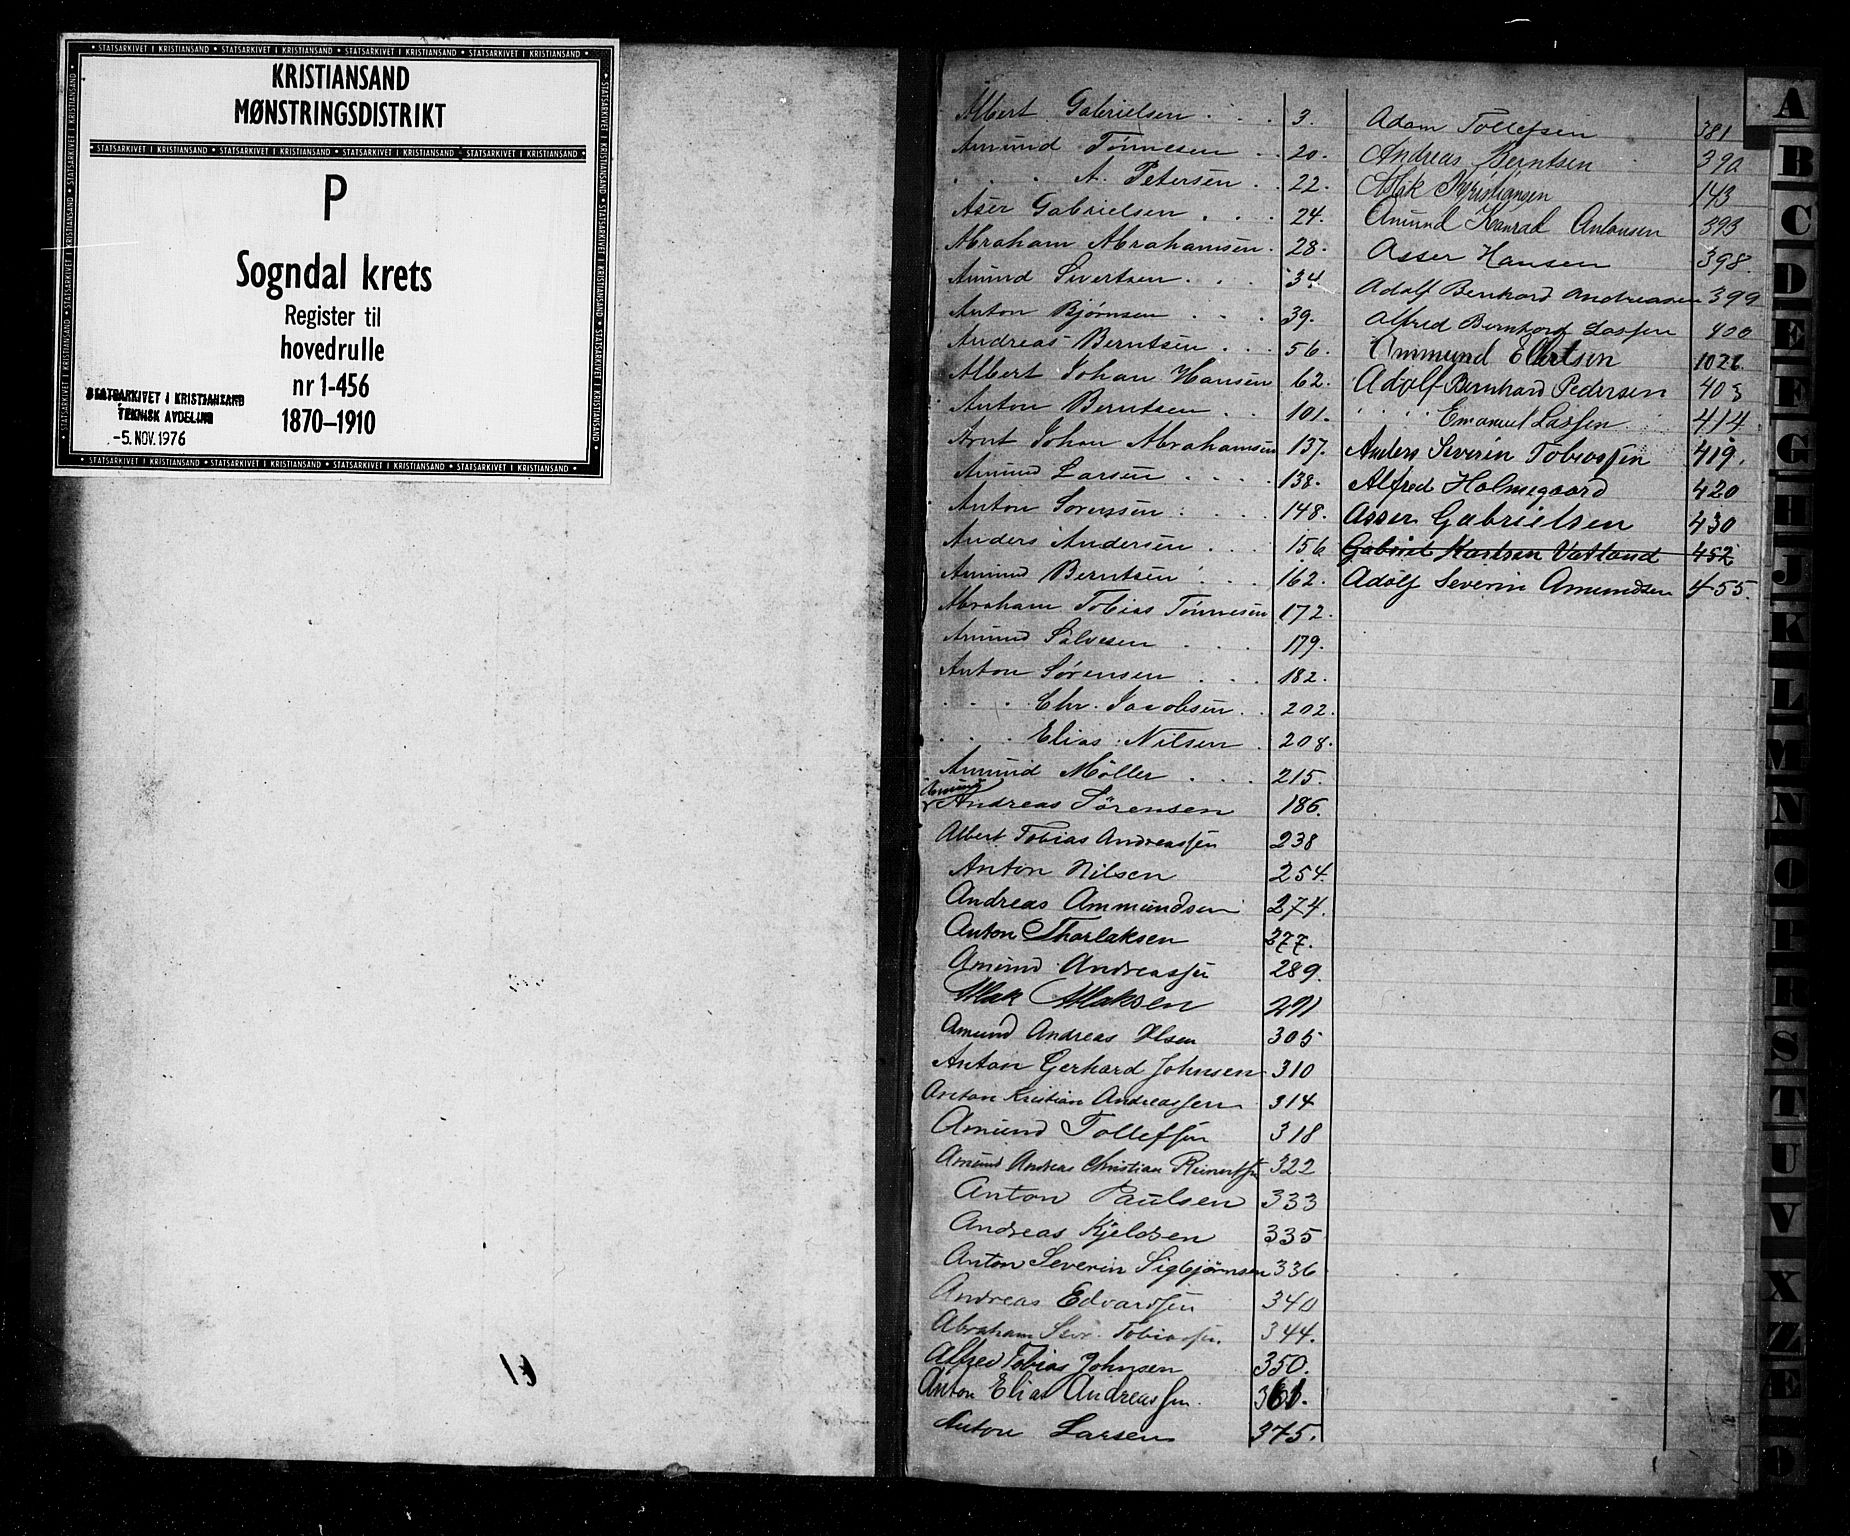 KRISTIANSAND
MØNSTRINGSDISTRIKT
P
Sogndal krets
Register til
hovedrulle
nr 1-456
1870–1910
STATSARKIVET I KRISTIANSAND
TEKNISK AVDELING
-5. NOV. 1976
Albert Gabrielsen . . . 3.
Amund Tønnesen . . 20.
. . . A. Petersen . . 22.
Aser Gabrielsen . . . 24.
Abraham Abrahamsen . 28.
Amund Sivertsen . . . 34
Anton Bjørnsen . . . 39.
Andreas Berntsen . . . 56.
Albert Johan Hansen 62.
Anton Berntsen . . . 101.
Arnt Johan Abrahamsen 137.
Amund Larsen . . . . 138.
Anton Sørensen . . . . 148.
Anders Andersen . . . 156
Amund Berntsen . . . 162.
Abraham Tobias Tønnesen 172.
Amund Salvesen . . . 179.
Anton Sørensen . . . 182.
. . . Chr. Jacobsen . . 202.
. . . Elias Nilsen . 208.
Amund Møller . . . 215.
Amund
Andreas Sørensen 186.
Albert Tobias Andreassen 238
Anton Nilsen 254.
Andreas Ammundsen 274.
Anton Thorlaksen 277.
Amund Andreassen 289.
Aslak Aslaksen 291
Amund Andreas Olsen 305
Anton Gerhard Johnsen 310
Anton Kristian Andreassen 314
Amund Tollefsen 318
Amund Andreas Christian Reinertsen 322
Anton Paulsen 333
Andreas Kjeldsen 335
Anton Severin Sigbjørnsen 336
Andreas Edvardsen 340
Abraham Sevr. Tobiassen 344.
Alfred Tobias Johnsen 350.
Anton Elias Andreassen. 361.
Anton Larsen 375.
Adam Tollefsen 381
Andreas Berntsen 390
Aslak Kristiansen 143
Amund Konrad Antonsen 393
Asser Hansen 398.
Adolf Bernhard Andreasen 399
Alfred Bernhard Lassen 400
Ammund Elertsen
Adolf Bernhard Pedersen 403
. . . . Emanuel Lassen . 414
Anders Severin Tobiassen 419.
Alfred Holmegaard 420
Asser Gabrielsen 430
Gabriel Karlsen Vatland 452
Adolf Severin Amundsen 455.
A
B
C
D
E
F
G
H
J
K
L
M
N
O
P
R
S
T
U
V
X
Z
Æ
Ø